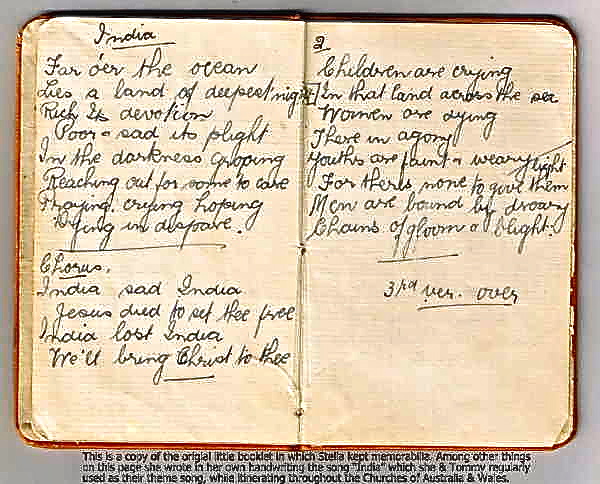 India
Far o'er the ocean
Lies a land of deepest night
Rich Its devotion
Poor & sad its plight
In the darkness grooping
Reaching out for some to care
Praying, crying hoping
Dying in dispare.
Chorus.
India sad India
Jesus died to set thee free
India lost India
We'll bring Christ to thee
2
Children are crying
In that land across the sea
Women are dying
There in agony
Youths are faint & weary
For theres none to give them light
Men are bound by dreary
Chains of gloom & blight.
3rd ver. over
This is a copy of the origial little booklet in which Stella kept memorabilia. Among other things
on this page she wrote in her own handwriting the song "India" which she & Tommy regularly
used as their theme song, while itinerating throughout the Churches of Australia & Wales.